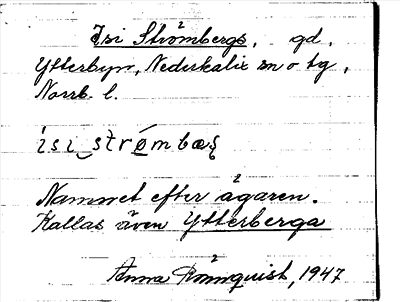 Isi Strömbergs, gd,
Ytterbyn, Nederkalix sn o tg,
Norrb. l.
Namnet efter ägaren.
Kallas även Ytterberga
Anna Rönnquist, 1947